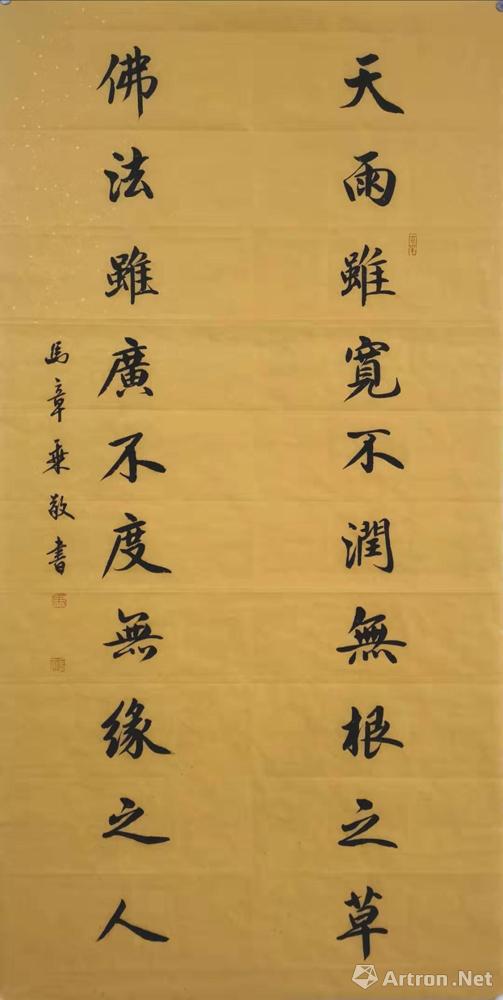 天雨雖寬不潤無根之草
佛法雖廣不度無緣之人
馬章乘敬書
Artron.Net